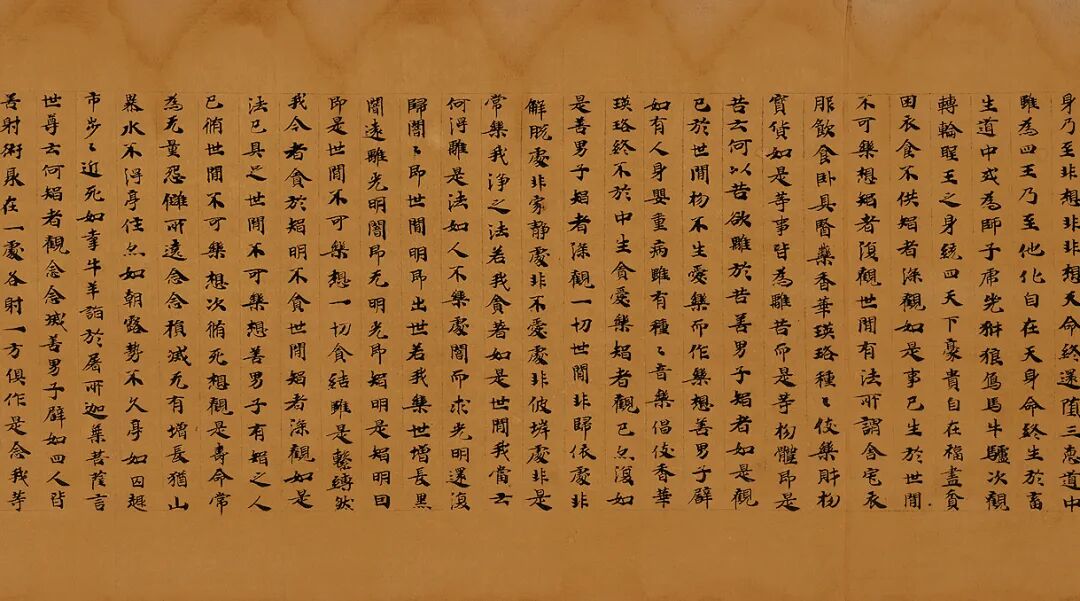 身乃至非想非非想天命終還墮三惡道中
雖為四王乃至他化自在天身命終生於畜
生道中或為師子虎兕犲狼象馬牛驢次觀
轉輪聖王之身統四天下豪貴自在福盡貧
困衣食不供智者深觀如是事已生於世間
不可樂想智者復觀世間有法所謂舍宅衣
服飲食卧具醫藥香華瓔珞種〻伎樂財物
寶貨如是等事皆為離苦而是等物體即是
苦云何以苦欲離於苦善男子智者如是觀
已於世間物不生愛樂而作樂想善男子譬
如有人身嬰重病雖有種〻音樂倡伎香華
瓔珞終不於中生貪愛樂智者觀已亦復如
是善男子智者深觀一切世間非歸依處非
解脫處非寂靜處非不愛處非彼岸處非是
常樂我淨之法若我貪著如是世間我當云
何得離是法如人不樂處闇而求光明還復
歸闇〻即世間明即出世若我樂世增長黑
闇遠離光明闇即无明光即智明是智明因
即是世間不可樂想一切貪結雖是繫縛然
我今者貪於智明不貪世間智者深觀如是
法已具足世間不可樂想善男子有智之人
已脩世間不可樂想次脩死想觀是壽命常
為无量怨讎所遶念念損減无有增長猶山
暴水不得停住亦如朝露勢不久停如囚趣
市步〻近死如牽牛羊詣於屠所迦葉菩薩言
世尊云何智者觀念念滅善男子譬如四人皆
善射術聚在一處各射一方俱作是念我等